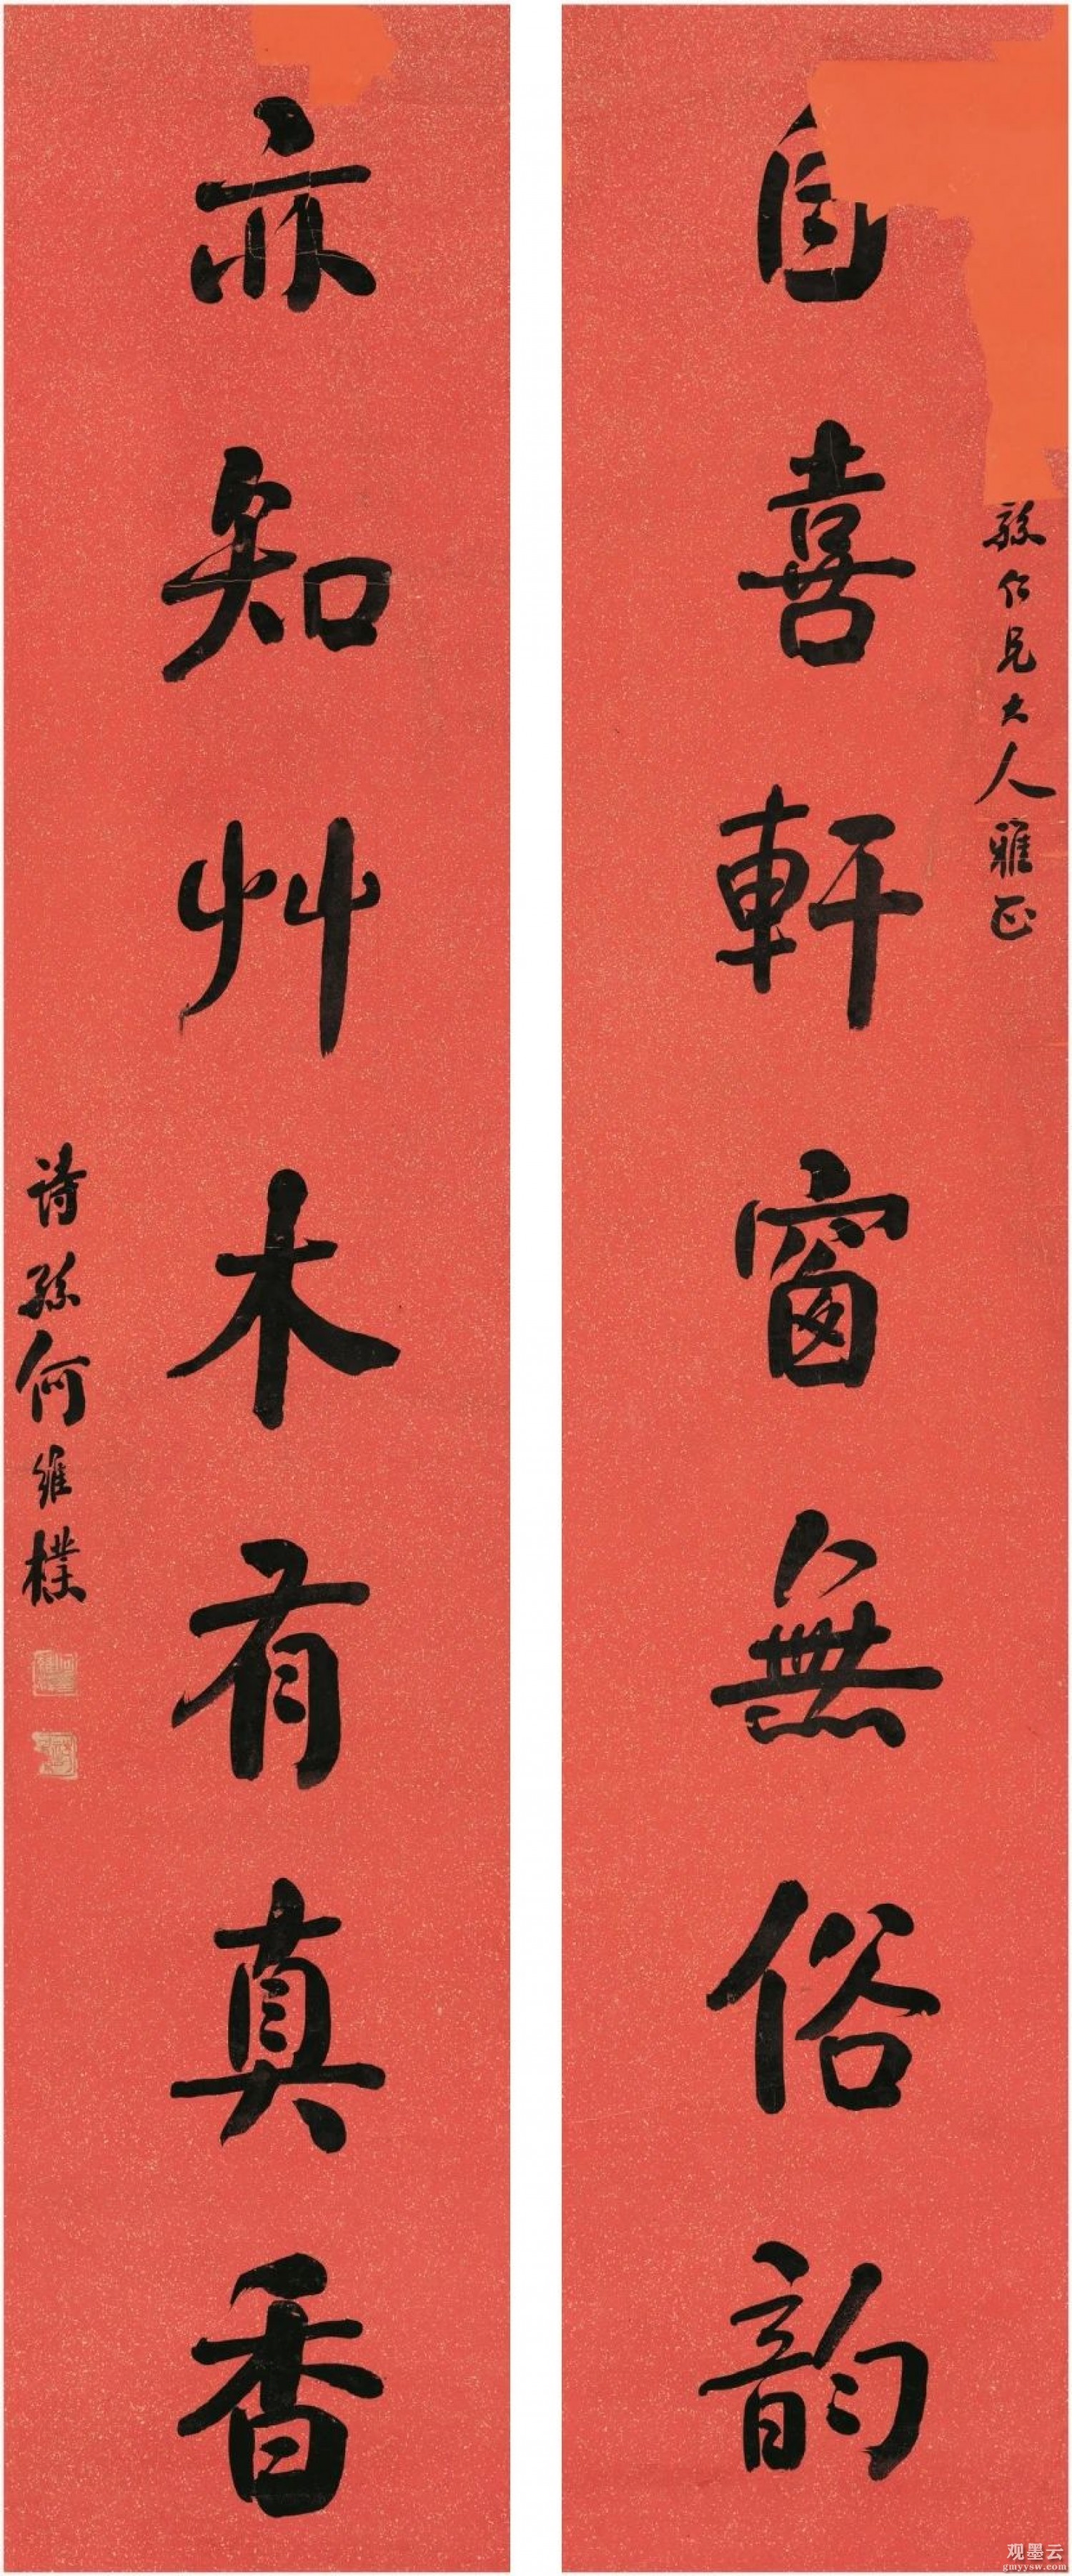 孫仁兄大人雅正
自喜軒窗無俗韵
亦知艸木有真香
诗孫何維樸
观墨云
gmyysw.com